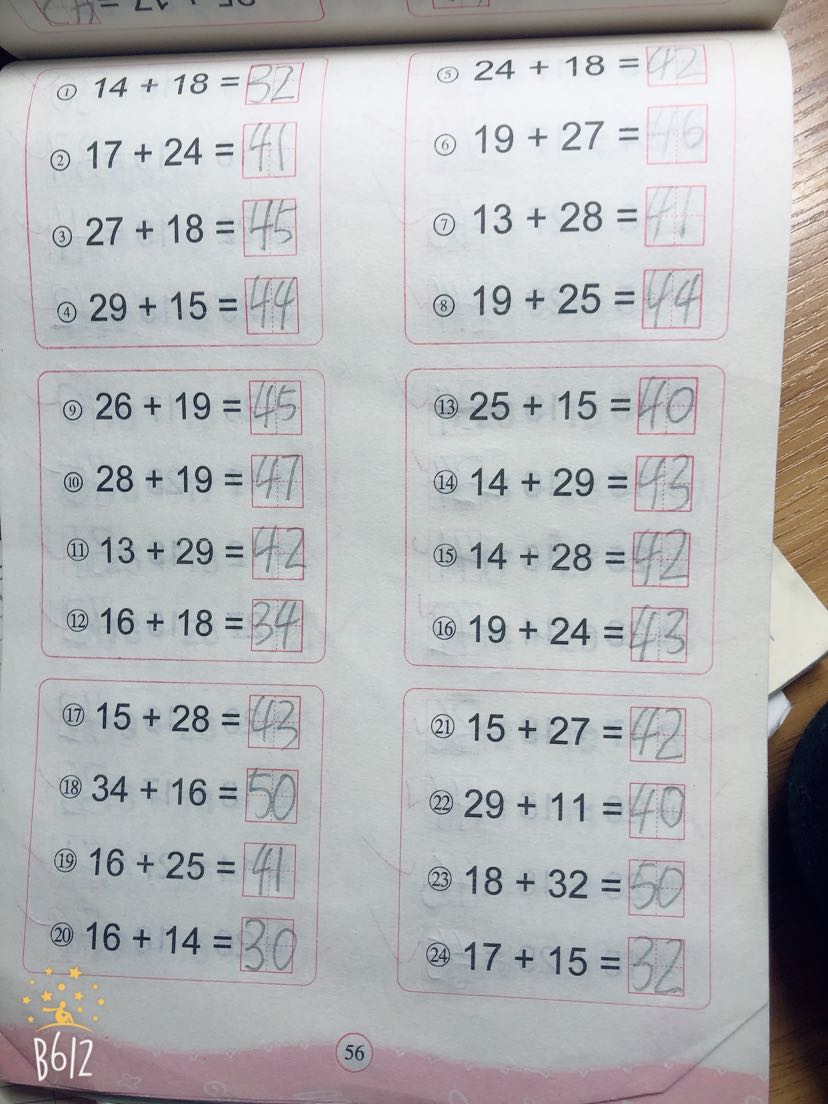 ① 14 + 18 = 32
② 17 + 24 = 41
③ 27 + 18 = 45
④ 29 + 15 = 44
⑤ 24 + 18 = 42
⑥ 19 + 27 = 46
⑦ 13 + 28 = 41
⑧ 19 + 25 = 44
⑨ 26 + 19 = 45
⑩ 28 + 19 = 47
⑪ 13 + 29 = 42
⑫ 16 + 18 = 34
⑬ 25 + 15 = 40
⑭ 14 + 29 = 43
⑮ 14 + 28 = 42
⑯ 19 + 24 = 43
⑰ 15 + 28 = 43
⑱ 34 + 16 = 50
⑲ 16 + 25 = 41
⑳ 16 + 14 = 30
㉑ 15 + 27 = 42
㉒ 29 + 11 = 40
㉓ 18 + 32 = 50
㉔ 17 + 15 = 32
B612
56